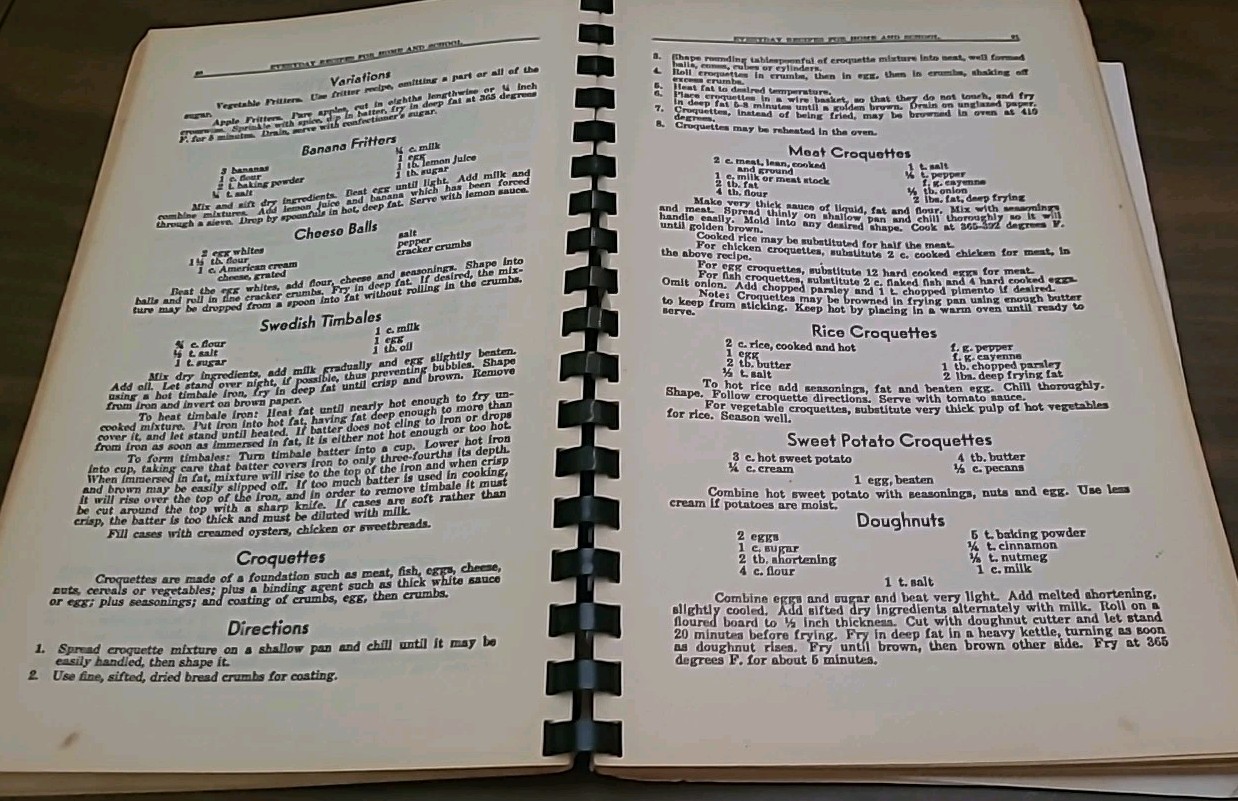 EVERYDAY RECIPES FOR HOME AND SCHOOL
Variations
Vegetable Fritters. Use fritter recipe, omitting a part or all of the
sugar.
Apple Fritters. Pare apples, cut in eighths lengthwise or ¼ inch
crosswise. Sprinkle with spice, dip in batter, fry in deep fat at 365 degrees
F. for 5 minutes. Drain, serve with confectioner's sugar.
Banana Fritters
3 bananas
1 c. flour
2 t. baking powder
¼ t. salt
¼ c. milk
1 egg
1 tb. lemon juice
1 tb. sugar
Mix and sift dry ingredients. Beat egg until light. Add milk and
combine mixtures. Add lemon juice and banana which has been forced
through a sieve. Drop by spoonfuls in hot, deep fat. Serve with lemon sauce.
Cheese Balls
2 egg whites
1½ tb. flour
1 c. American cream
cheese, grated
salt
pepper
cracker crumbs
Beat the egg whites, add flour, cheese and seasonings. Shape into
balls and roll in fine cracker crumbs. Fry in deep fat. If desired, the mix-
ture may be dropped from a spoon into fat without rolling in the crumbs.
Swedish Timbales
¾ c. flour
½ t. salt
1 t. sugar
1 c. milk
1 egg
1 tb. oil
Mix dry ingredients, add milk gradually and egg slightly beaten.
Add oil. Let stand over night, if possible, thus preventing bubbles. Shape
using a hot timbale iron, fry in deep fat until crisp and brown. Remove
from iron and invert on brown paper.
To heat timbale iron: Heat fat until nearly hot enough to fry un-
cooked mixture. Put iron into hot fat, having fat deep enough to more than
cover it, and let stand until heated. If batter does not cling to iron or drops
from iron as soon as immersed in fat, it is either not hot enough or too hot.
To form timbales: Turn timbale batter into a cup. Lower hot iron
into cup, taking care that batter covers iron to only three-fourths its depth.
When immersed in fat, mixture will rise to the top of the iron and when crisp
and brown may be easily slipped off. If too much batter is used in cooking,
it will rise over the top of the iron, and in order to remove timbale it must
be cut around the top with a sharp knife. If cases are soft rather than
crisp, the batter is too thick and must be diluted with milk.
Fill cases with creamed oysters, chicken or sweetbreads.
Croquettes
Croquettes are made of a foundation such as meat, fish, eggs, cheese,
nuts, cereals or vegetables; plus a binding agent such as thick white sauce
or egg; plus seasonings; and coating of crumbs, egg, then crumbs.
Directions
1. Spread croquette mixture on a shallow pan and chill until it may be
easily handled, then shape it.
2. Use fine, sifted, dried bread crumbs for coating.
EVERYDAY RECIPES FOR HOME AND SCHOOL
3. Shape rounding tablespoonful of croquette mixture into neat, well formed
balls, cones, cubes or cylinders.
4. Roll croquettes in crumbs, then in egg, then in crumbs, shaking off
excess crumbs.
5. Heat fat to desired temperature.
6. Place croquettes in a wire basket, so that they do not touch, and fry
in deep fat 5-8 minutes until a golden brown. Drain on unglazed paper.
7. Croquettes, instead of being fried, may be browned in oven at 410
degrees.
8. Croquettes may be reheated in the oven.
Meat Croquettes
2 c. meat, lean, cooked
and ground
1 c. milk or meat stock
2 tb. fat
4 tb. flour
1 t. salt
⅛ t. pepper
f. g. cayenne
½ tb. onion
2 lbs. fat, deep frying
Make very thick sauce of liquid, fat and flour. Mix with seasonings
and meat. Spread thinly on shallow pan and chill thoroughly so it will
handle easily. Mold into any desired shape. Cook at 365-392 degrees F.
until golden brown.
Cooked rice may be substituted for half the meat.
For chicken croquettes, substitute 2 c. cooked chicken for meat, in
the above recipe.
For egg croquettes, substitute 12 hard cooked eggs for meat.
For fish croquettes, substitute 2 c. flaked fish and 4 hard cooked eggs.
Omit onion. Add chopped parsley and 1 t. chopped pimento if desired.
Note: Croquettes may be browned in frying pan using enough butter
to keep from sticking. Keep hot by placing in a warm oven until ready to
serve.
Rice Croquettes
2 c. rice, cooked and hot
1 egg
2 tb. butter
½ t. salt
f. g. pepper
f. g. cayenne
1 tb. chopped parsley
2 lbs. deep frying fat
To hot rice add seasonings, fat and beaten egg. Chill thoroughly.
Shape. Follow croquette directions. Serve with tomato sauce.
For vegetable croquettes, substitute very thick pulp of hot vegetables
for rice. Season well.
Sweet Potato Croquettes
3 c. hot sweet potato
¼ c. cream
4 tb. butter
½ c. pecans
1 egg, beaten
Combine hot sweet potato with seasonings, nuts and egg. Use less
cream if potatoes are moist.
Doughnuts
2 eggs
1 c. sugar
2 tb. shortening
4 c. flour
5 t. baking powder
¼ t. cinnamon
⅛ t. nutmeg
1 c. milk
1 t. salt
Combine eggs and sugar and beat very light. Add melted shortening,
slightly cooled. Add sifted dry ingredients alternately with milk. Roll on a
floured board to ½ inch thickness. Cut with doughnut cutter and let stand
20 minutes before frying. Fry in deep fat in a heavy kettle, turning as soon
as doughnut rises. Fry until brown, then brown other side. Fry at 365
degrees F. for about 5 minutes.